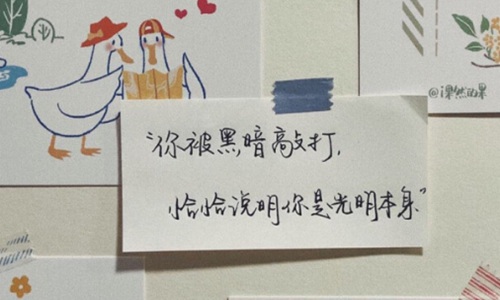 “你被黑暗敲打，
恰恰说明你是光明本身”
@课然的果